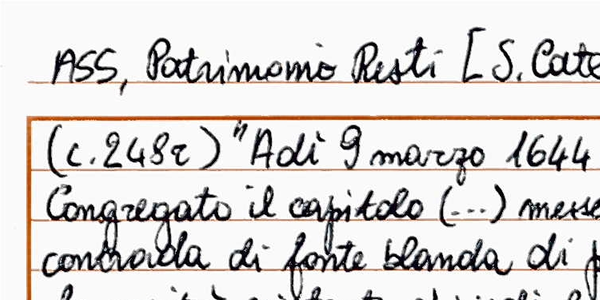 ASS, Patrimonio Resti [S. Cate
(c.248r) "Adì 9 marzo 1644
Congregato il capitolo (...) messe
contrada di fonte blanda di